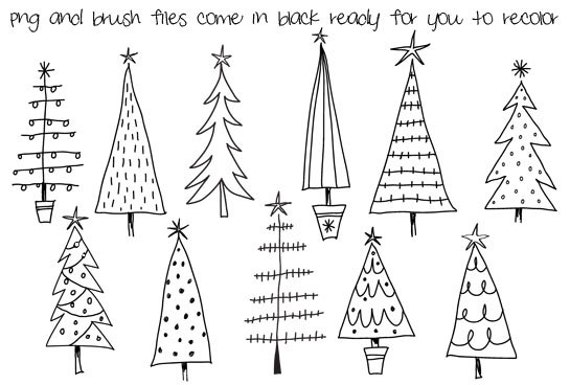 png and brush files come in black ready for you to recolor